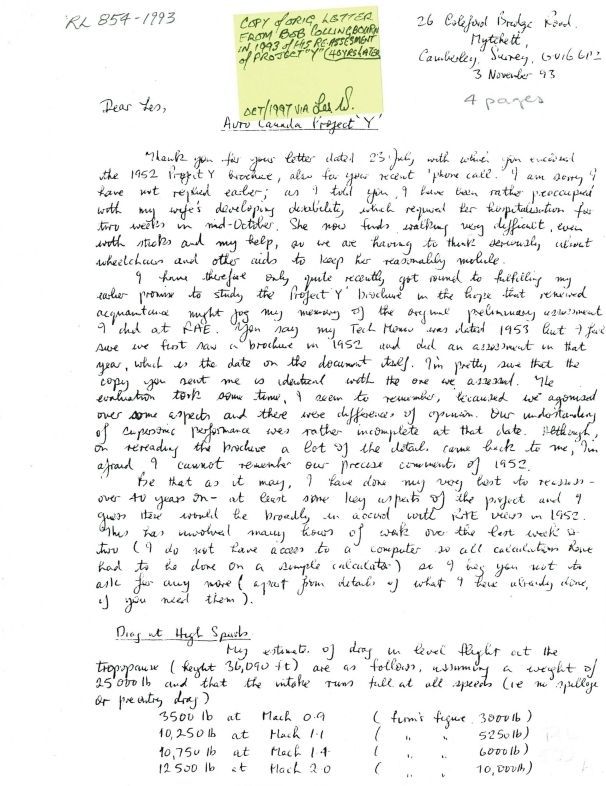 RL 854-1993
COPY of ORIG. LETTER
FROM BOB COLLINGBOURN
IN 1993 of HIS RE-ASSESSMENT
of PROJECT "Y" (40 YRS LATER)
OCT/1997 VIA Les W.
26 Coleford Bridge Road.
Mytchett,
Camberley, Surrey, GU16 6PZ
3 November 93
4 pages
Dear Les,
Avro Canada Project 'Y'
Thank you for your letter dated 23 July, with which you enclosed
the 1952 Project Y brochure, also for your recent 'phone call. I am sorry I
have not replied earlier; as I told you, I have been rather preoccupied
with my wife's developing disability, which required her hospitalisation for
two weeks in mid-October. She now finds walking very difficult, even
with sticks and my help, so we are having to think seriously about
wheelchairs and other aids to keep her reasonably mobile.
I have therefore only quite recently got round to fulfilling my
earlier promise to study the Project 'Y' brochure in the hope that renewed
acquantance might jog my memory of the original preliminary assessment
I did at RAE. You say my Tech Memo was dated 1953 but I feel
sure we first saw a brochure in 1952 and did an assessment in that
year, which is the date on the document itself. I'm pretty sure that the
copy you sent me is identical with the one we assessed. The
evaluation took some time, I seem to remember, because we agonised
over some aspects and there were differences of opinion. Our understanding
of supersonic performance was rather incomplete at that date. Although,
on rereading the brochure a lot of the details came back to me, I'm
afraid I cannot remember our precise comments of 1952.
Be that as it may, I have done my very best to reassess -
over 40 years on - at least some key aspects of the project and I
guess these would be broadly in accord with RAE views in 1952.
This has involved many hours of work over the last week or
two (I do not have access to a computer so all calculations have
had to be done on a simple calculator) so I beg you not to
ask for any more (apart from details of what I have already done,
if you need them).
Drag at High Speeds
My estimates of drag in level flight at the
tropopause (height 36,090 ft) are as follows, assuming a weight of
25000 lb and that the intake runs full at all speeds (ie no spillage
or pre entry drag)
3500 lb at Mach 0.9 (firm's figure 3000 lb)
10,250 lb at Mach 1.1 ( " " 5250 lb)
10,750 lb at Mach 1.4 ( " " 6000 lb)
12500 lb at Mach 2.0 ( " " 10,000 lb)